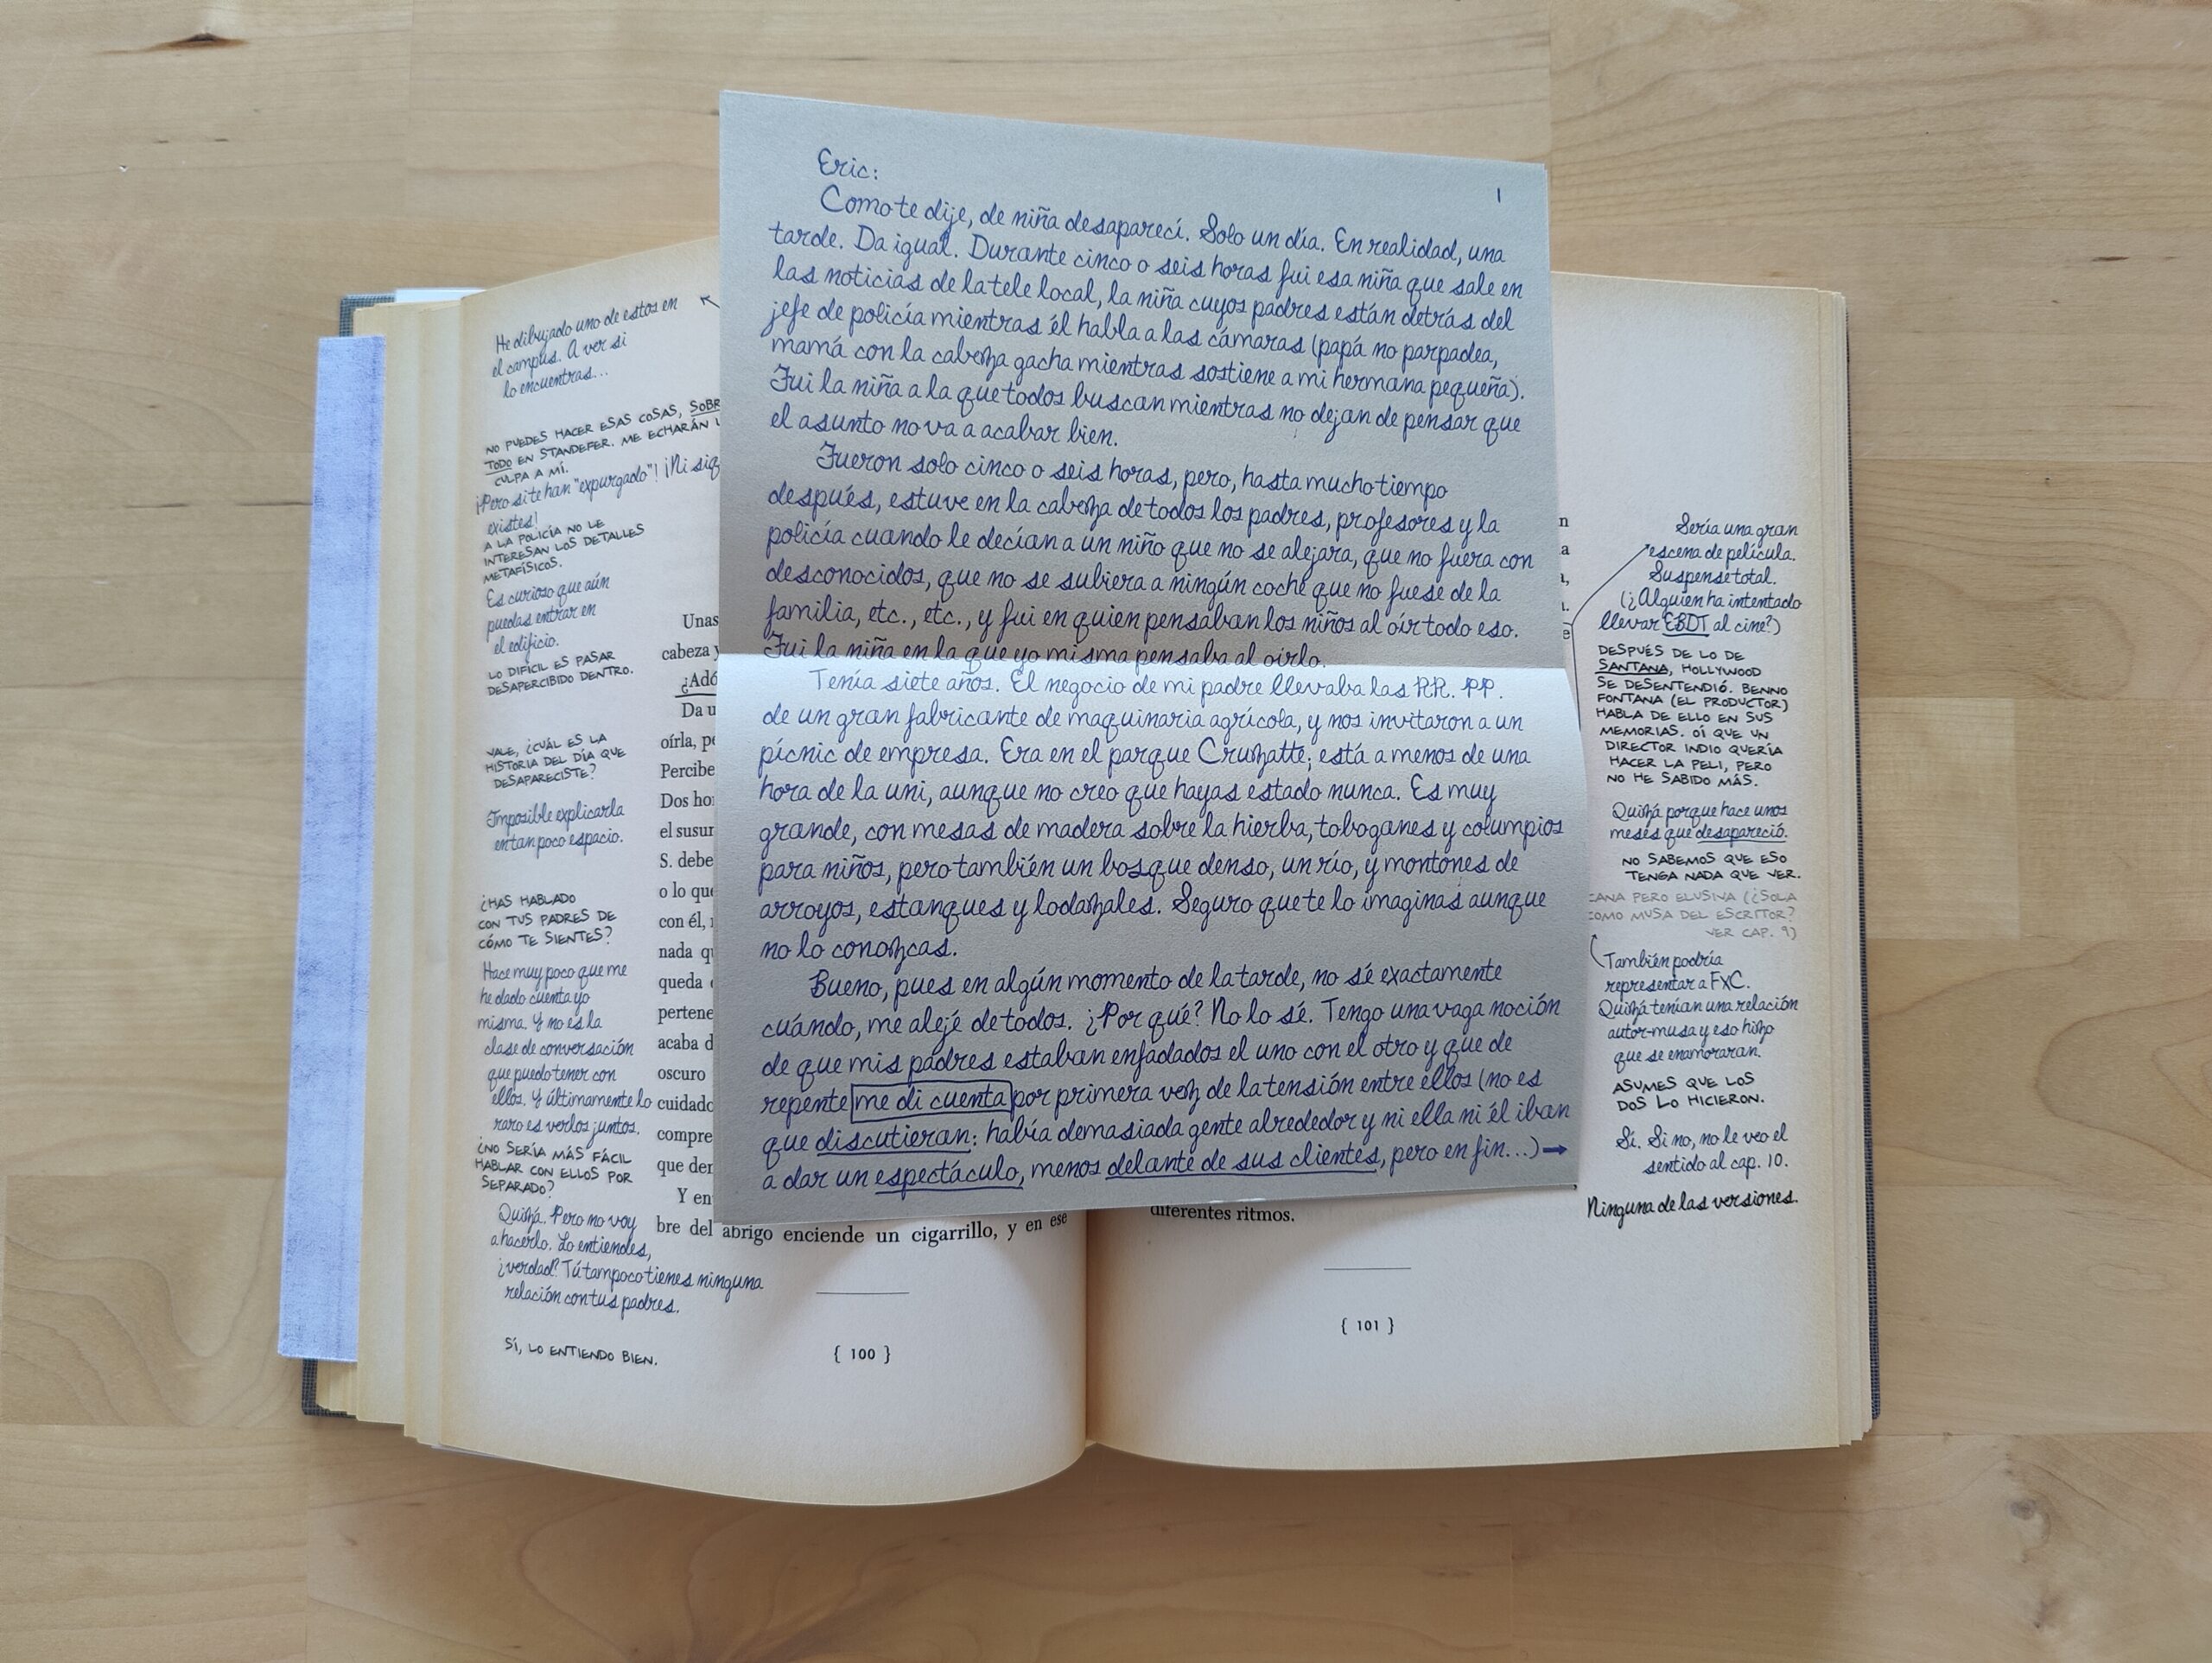 Eric:
1
Como te dije, de niña desaparecí. Solo un día. En realidad, una
tarde. Da igual. Durante cinco o seis horas fui esa niña que sale en
las noticias de la tele local, la niña cuyos padres están detrás del
jefe de policía mientras él habla a las cámaras (papá no parpadea,
mamá con la cabeza gacha mientras sostiene a mi hermana pequeña).
Fui la niña a la que todos buscan mientras no dejan de pensar que
el asunto no va a acabar bien.
Fueron solo cinco o seis horas, pero, hasta mucho tiempo
después, estuve en la cabeza de todos los padres, profesores y la
policía cuando le decían a un niño que no se alejara, que no fuera con
desconocidos, que no se subiera a ningún coche que no fuese de la
familia, etc., etc., y fui en quien pensaban los niños al oír todo eso.
Fui la niña en la que yo misma pensaba al oírlo.
Tenía siete años. El negocio de mi padre llevaba las RR. PP.
de un gran fabricante de maquinaria agrícola, y nos invitaron a un
pícnic de empresa. Era en el parque Cruzatte; está a menos de una
hora de la uni, aunque no creo que hayas estado nunca. Es muy
grande, con mesas de madera sobre la hierba, toboganes y columpios
para niños, pero también un bosque denso, un río, y montones de
arroyos, estanques y lodazales. Seguro que te lo imaginas aunque
no lo conozcas.
Bueno, pues en algún momento de la tarde, no sé exactamente
cuándo, me alejé de todos. ¿Por qué? No lo sé. Tengo una vaga noción
de que mis padres estaban enfadados el uno con el otro y que de
repente me di cuenta por primera vez de la tensión entre ellos (no es
que discutieran: había demasiada gente alrededor y ni ella ni él iban
a dar un espectáculo, menos delante de sus clientes, pero en fin...) →
He dibujado uno de estos en
el campus. A ver si
lo encuentras...
NO PUEDES HACER ESAS COSAS, SOBR
TODO EN STANDEFER. ME ECHARÁN L
CULPA A MÍ.
¡Pero si te han "expurgado"! ¡Ni siq
existes!
A LA POLICÍA NO LE
INTERESAN LOS DETALLES
METAFÍSICOS.
Es curioso que aún
puedas entrar en
el edificio.
LO DIFÍCIL ES PASAR
DESAPERCIBIDO DENTRO.
VALE, ¿CUÁL ES LA
HISTORIA DEL DÍA QUE
DESAPARECISTE?
Imposible explicarla
en tan poco espacio.
¿HAS HABLADO
CON TUS PADRES DE
CÓMO TE SIENTES?
Hace muy poco que me
he dado cuenta yo
misma. Y no es la
clase de conversación
que puedo tener con
ellos. Y últimamente lo
raro es verlos juntos.
¿NO SERÍA MÁS FÁCIL
HABLAR CON ELLOS POR
SEPARADO?
Quizá. Pero no voy
a hacerlo. Lo entiendes,
¿verdad? Tú tampoco tienes ninguna
relación con tus padres.
SÍ, LO ENTIENDO BIEN.
Unas
cabeza y
¿Adó
Da u
oírla, pe
Percibe
Dos hor
el susur
S. debe
o lo que
con él, n
nada qu
queda
pertene
acaba d
oscuro
cuidado
compre
que der
Y en
bre del abrigo enciende un cigarrillo, y en ese
{ 100 }
n
a
,
.
e
diferentes ritmos.
{ 101 }
Sería una gran
escena de película.
Suspense total.
(¿Alguien ha intentado
llevar EBDT al cine?)
DESPUÉS DE LO DE
SANTANA, HOLLYWOOD
SE DESENTENDIÓ. BENNO
FONTANA (EL PRODUCTOR)
HABLA DE ELLO EN SUS
MEMORIAS. OÍ QUE UN
DIRECTOR INDIO QUERÍA
HACER LA PELI, PERO
NO HE SABIDO MÁS.
Quizá porque hace unos
meses que desapareció.
NO SABEMOS QUE ESO
TENGA NADA QUE VER.
CANA PERO ELUSIVA (¿SOLA
COMO MUSA DEL ESCRITOR?
VER CAP. 9)
También podría
representar a FXC.
Quizá tenían una relación
autor-musa y eso hizo
que se enamoraran.
ASUMES QUE LOS
DOS LO HICIERON.
Sí. Si no, no le veo el
sentido al cap. 10.
Ninguna de las versiones.